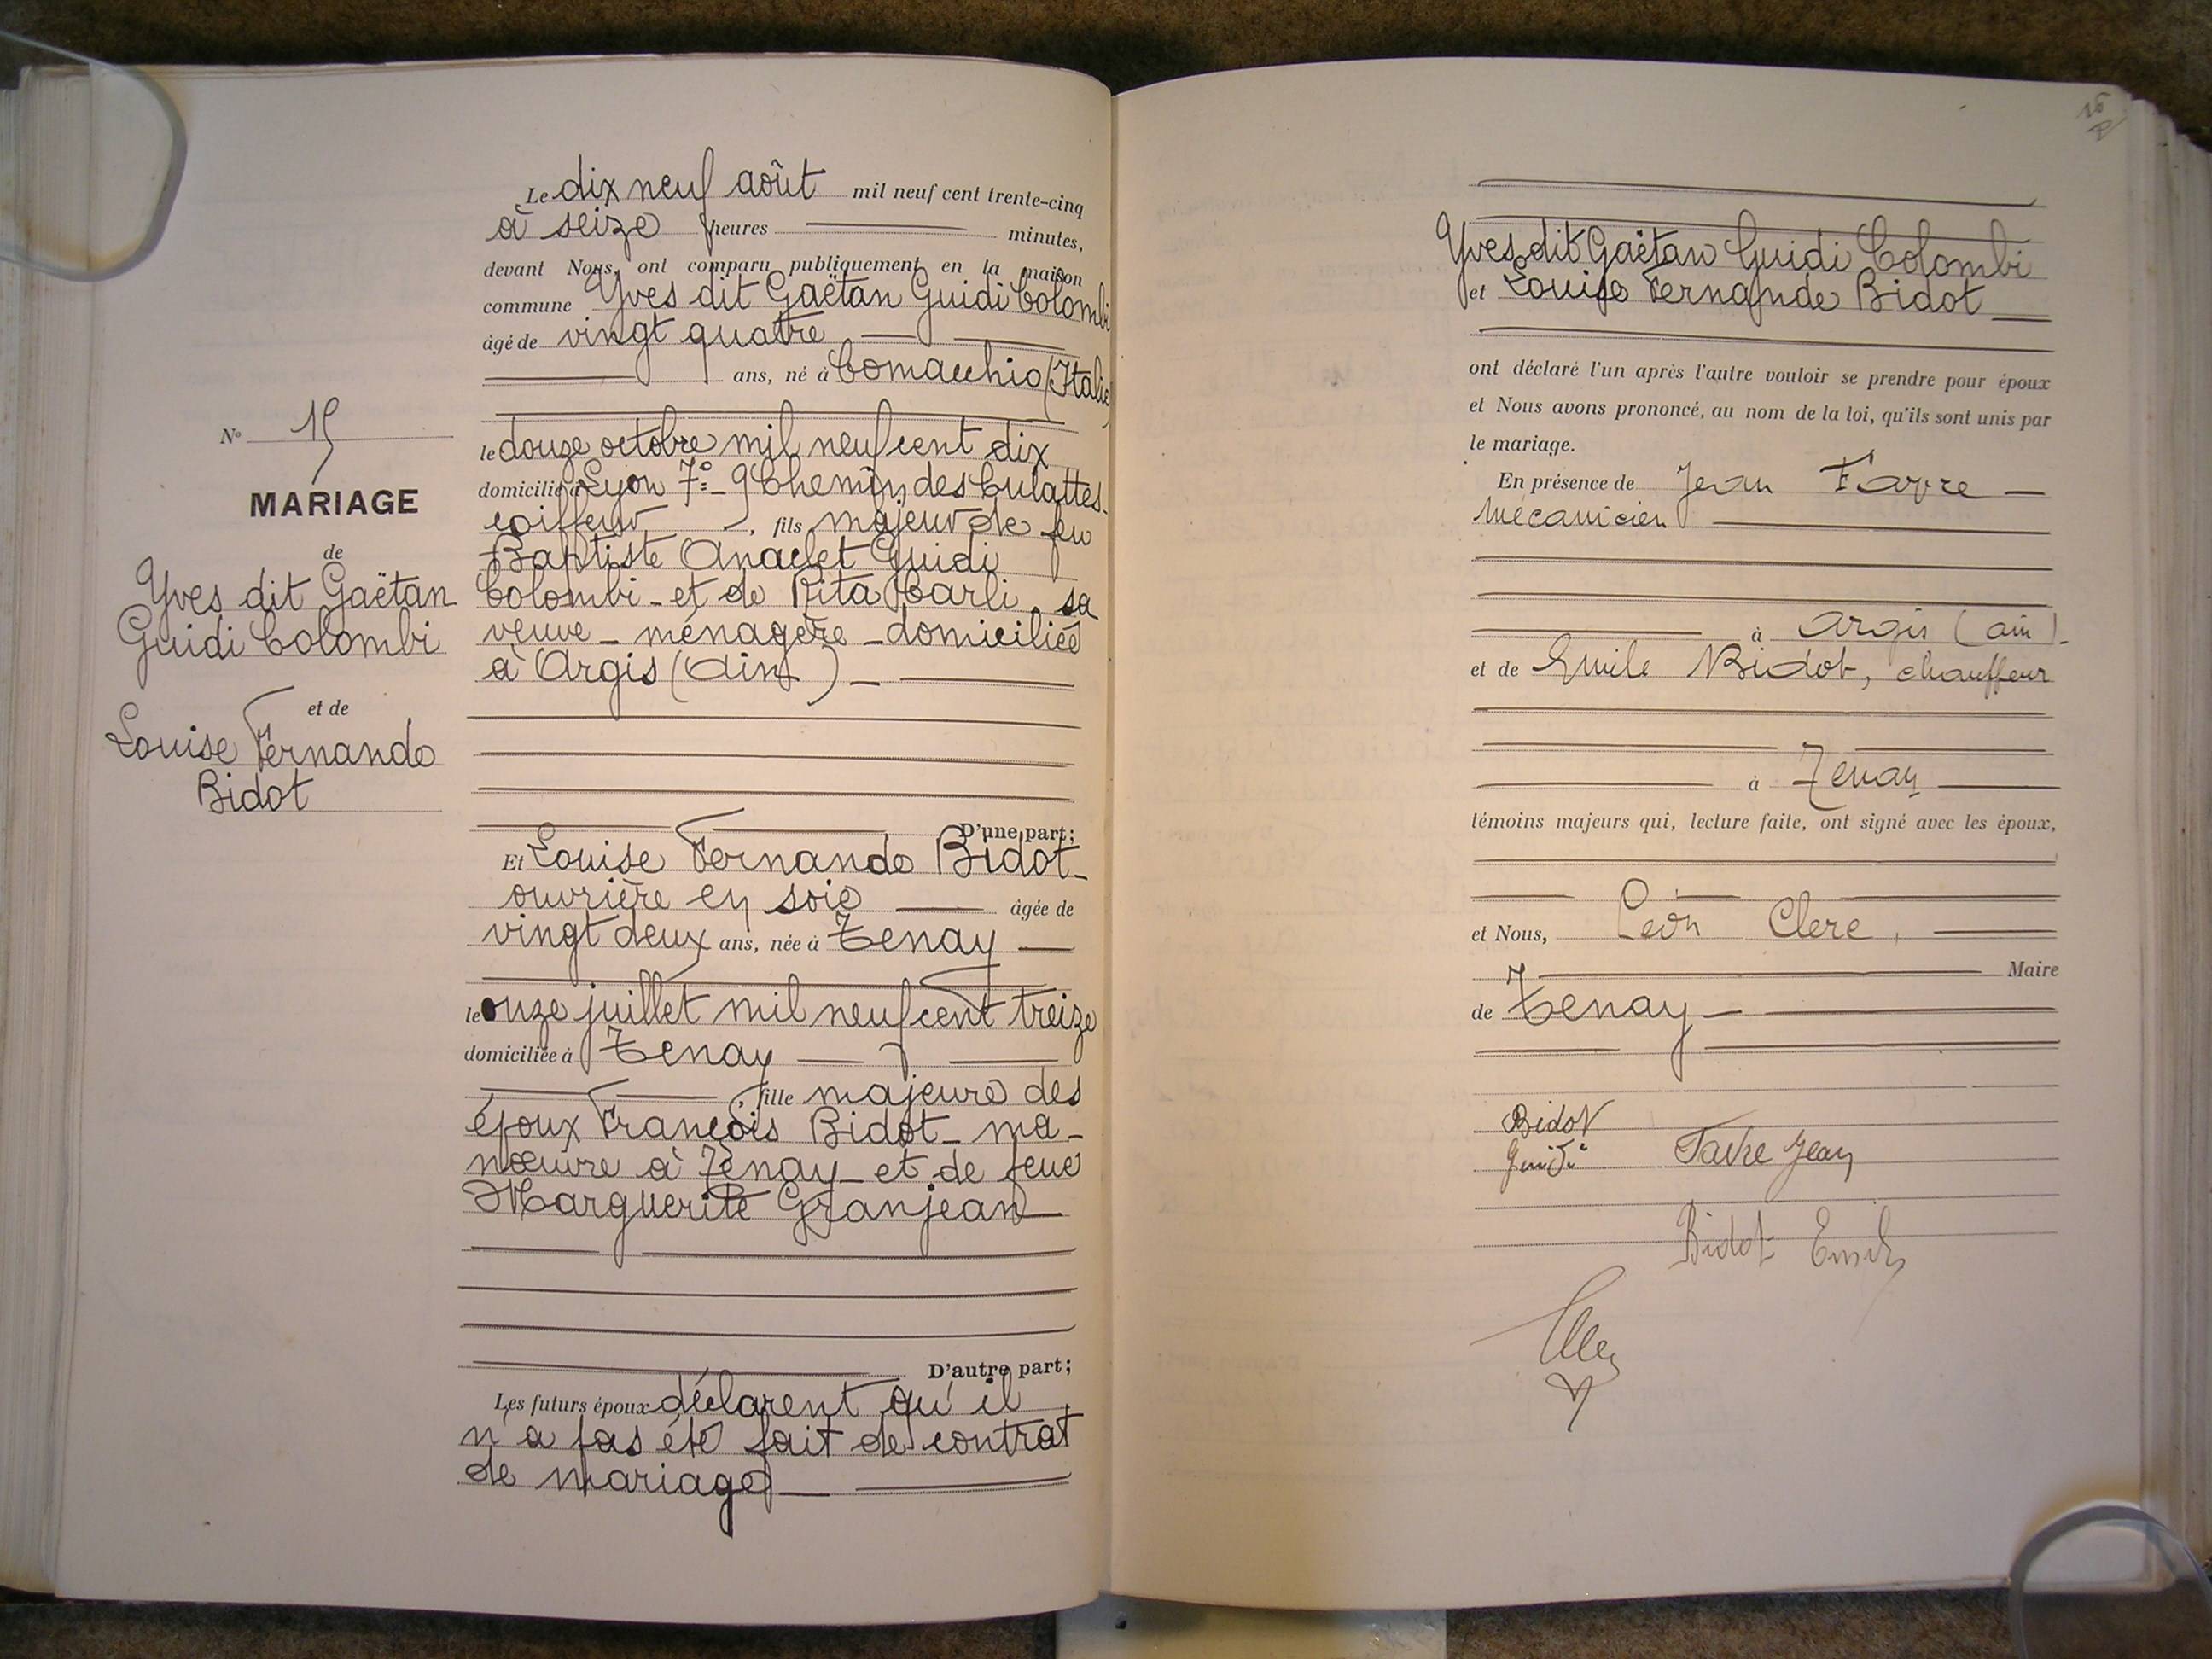 Le dix neuf août mil neuf cent trente-cinq
à seize heures minutes,
devant Nous, ont comparu publiquement en la maison
commune Yves dit Gaëtan Guidi Colombi
âgé de vingt quatre
ans, né à Comacchio (Italie)
le douze octobre mil neuf cent dix
domicilié à Lyon 7e - 9 Chemin des Culattes -
coiffeur, fils majeur de feu
Baptiste Anaclet Guidi
Colombi - et de Rita Carli, sa
veuve - ménagère - domiciliée
à Argis (Ain) -
D'une part;
Et Louise Fernande Bidot -
ouvrière en soie âgée de
vingt deux ans, née à Tenay
le onze juillet mil neuf cent treize
domiciliée à Tenay
, fille majeure des
époux François Bidot - ma-
nœuvre à Tenay - et de feue
Marguerite Granjean
D'autre part;
Les futurs époux déclarent qu'il
n'a pas été fait de contrat
de mariage
N° 15
MARIAGE
de
Yves dit Gaëtan
Guidi Colombi
et de
Louise Fernande
Bidot
Yves dit Gaëtan Guidi Colombi
et Louise Fernande Bidot
ont déclaré l'un après l'autre vouloir se prendre pour époux
et Nous avons prononcé, au nom de la loi, qu'ils sont unis par
le mariage.
En présence de Jean Favre -
mécanicien
à Argis (ain) -
et de Emile Bidot, chauffeur
à Tenay
témoins majeurs qui, lecture faite, ont signé avec les époux,
et Nous, Léon Clerc,
Maire
de Tenay -
Bidot
Guidi Favre Jean
Bidot Emile